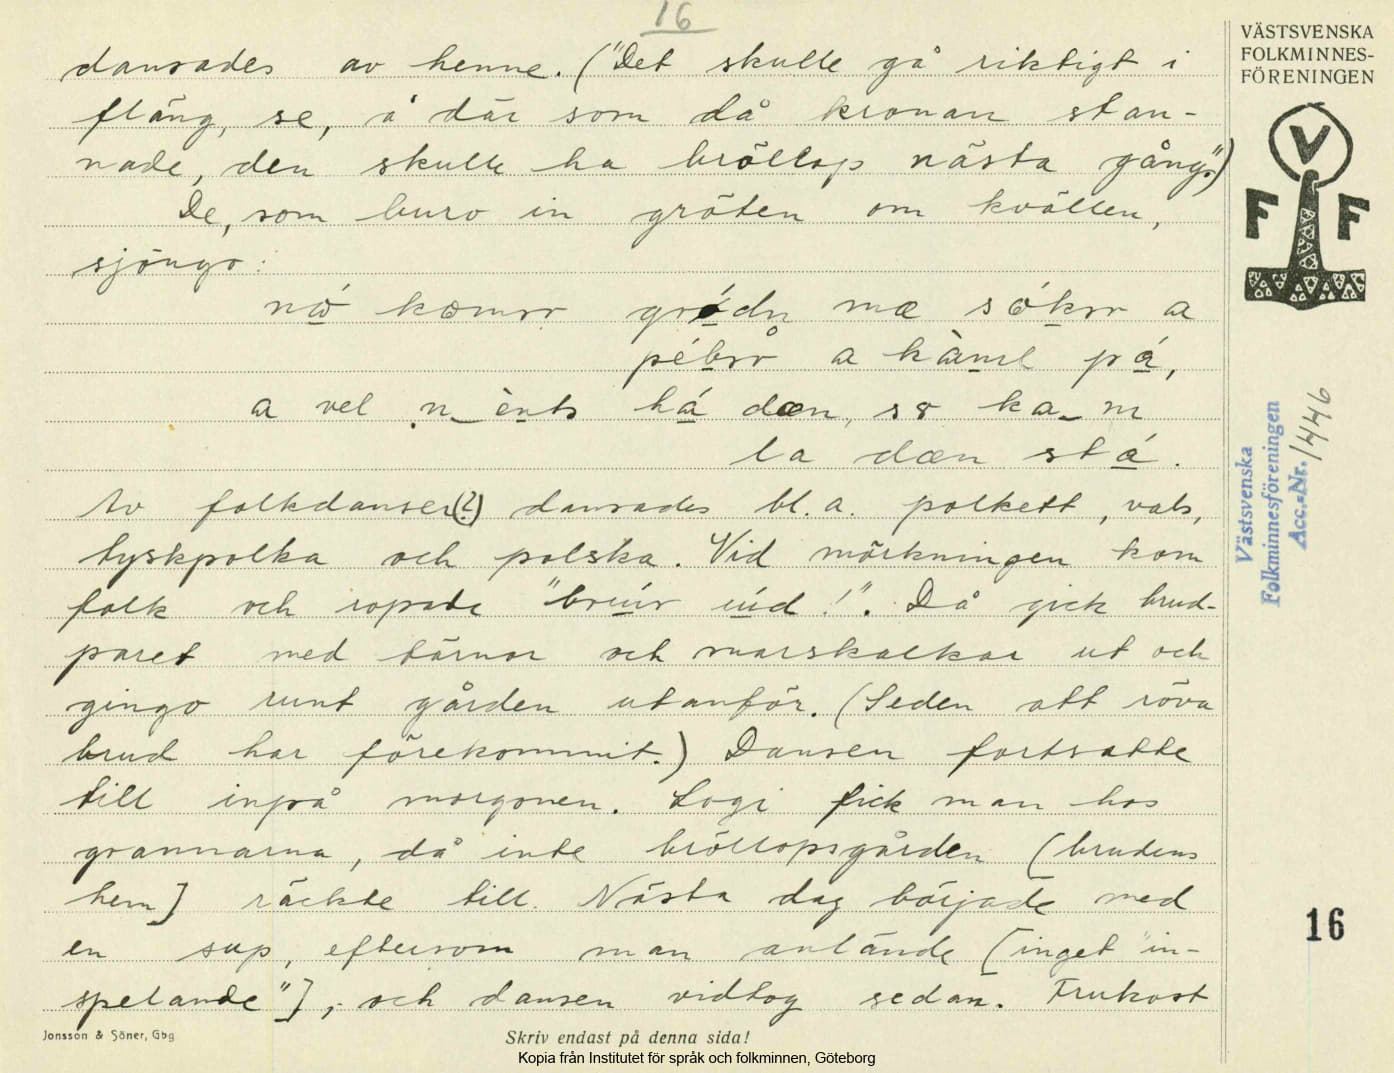 16
dansades av henne. ("Det skulle gå riktigt i
fläng, se, å där som då kronan stan-
nade, den skulle ha bröllop nästa gång.")
De, som buro in gröten om kvällen,
sjöngo:
kæmər mæ a
a på,
a vel há dæn, ka
la dæn stá.
Av folkdanser(?) dansades bl. a. polkett, vals,
tyskpolka och polska. Vid mörkningen kom
folk och ropade "brúr úd!". Då gick brud-
paret med tärnor och marskalkar ut och
gingo runt gården utanför. (Seden att röva
brud har förekommit.) Dansen fortsatte
till inpå morgonen. Logi fick man hos
grannarna, då inte bröllopsgården (brudens
hem] räckte till. Nästa dag började med
en sup, eftersom man anlände [inget "in-
spelande"]; och dansen vidtog sedan. Frukost
VÄSTSVENSKA
FOLKMINNES-
FÖRENINGEN
V
F F
Västsvenska
Folkminnesföreningen
Acc.-Nr. 1446
16
Jonsson & Söner, Gbg
Skriv endast på denna sida!
Kopia från Institutet för språk och folkminnen, Göteborg